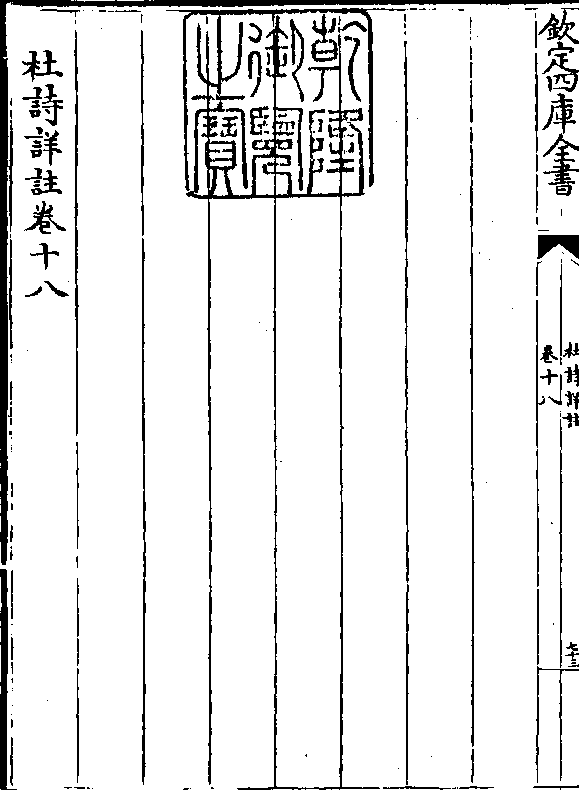 欽定四庫全書
杜詩詳註
卷十八
七十三
乾隆
御覽
之寶
杜詩詳註卷十八